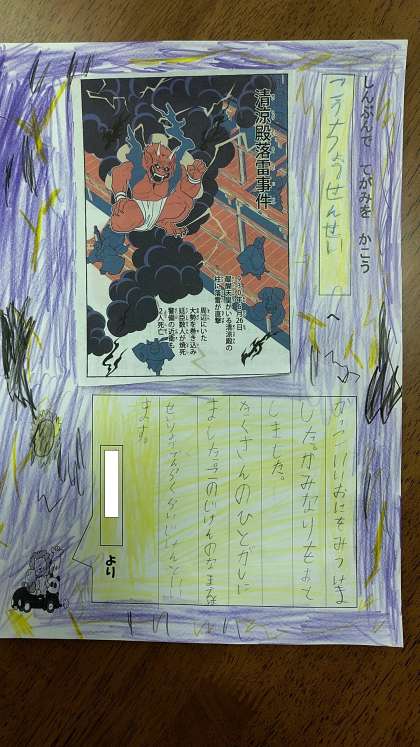 しんぶんで てがみを かこう
こうちょうせんせい
へ
清涼殿落雷事件
930年6月26日
醍醐天皇がいる清涼殿の
柱に落雷が直撃
周辺にいた
大勢を巻き込み
廷臣数人が焼死
警備の近衛も
2人死亡
かっこいいおにをみつけま
した。かみなりをおと
しました。
たくさんのひとがしに
ました。このじけんのなまえは
せいりょうでんらくらいじけんといい
ます。
より